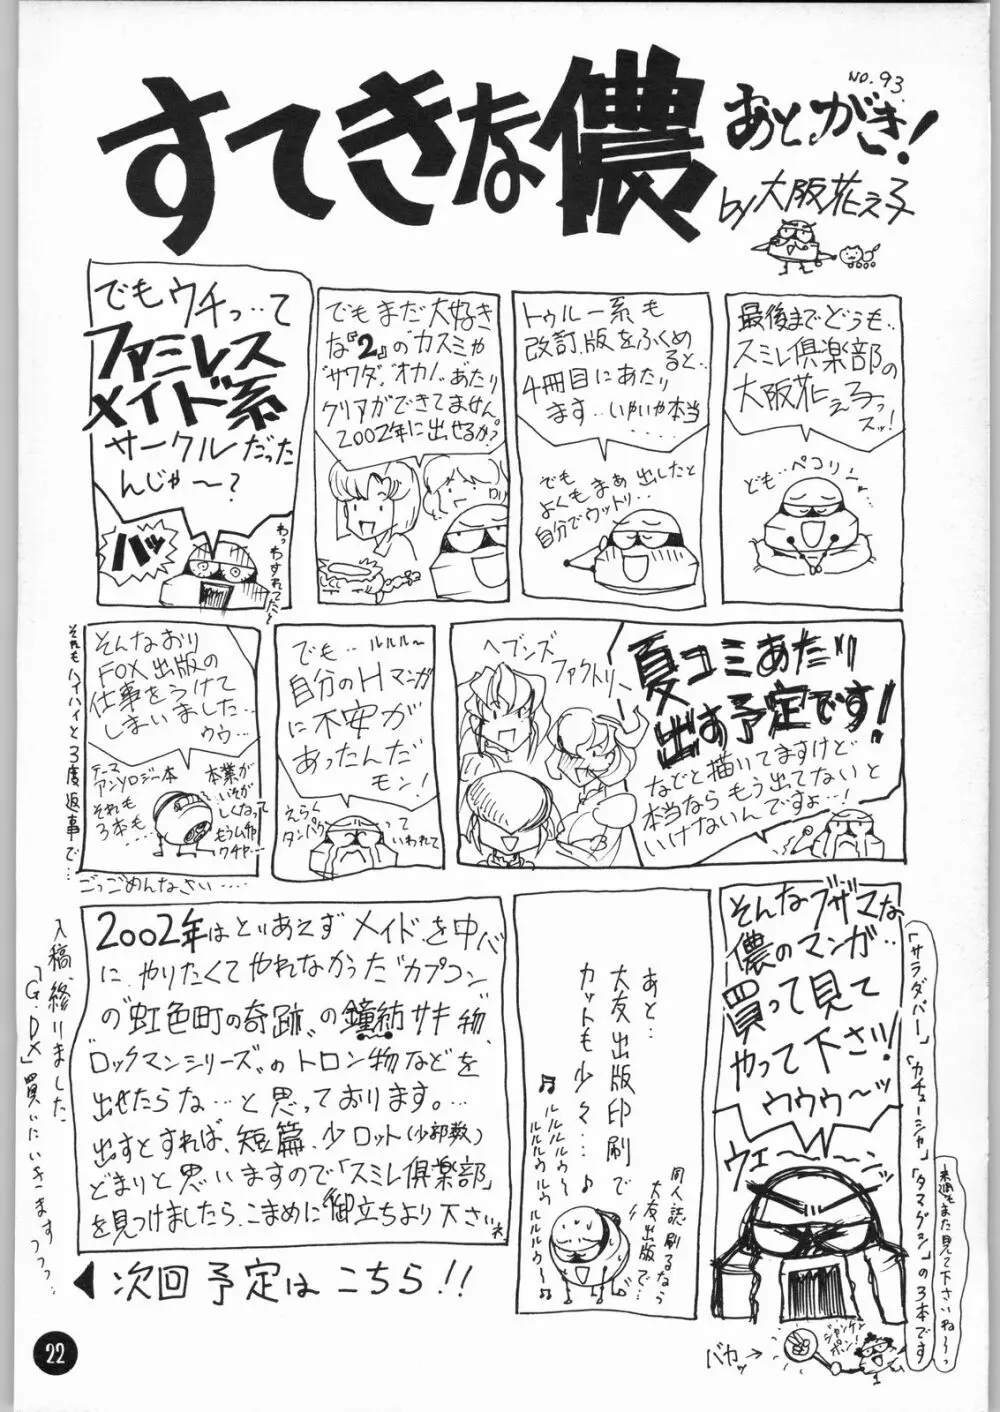 すてきな儂
NO.93.
あとがき!
by 大阪花え子
最後までどうも‥
スミレ倶楽部の
大阪花え子っ
スッ!
ども‥ペコリン
トゥルー系も
改訂版をふくめ
ると…
4冊目にあたり
ます‥いやいや本当
でも
よくもまぁ出したと
自分でウットリ…
でもまだ大好き
な『2』のカスミや
"サワダ""オカノ"あたり
クリアができてません
2002年に出せるか?
でもウチっ…て
ファミレス
メイド系
サークルだった
んじゃ〜?
ハッ
わっわすれてた〜
夏コミあたり
出す予定です!
などと描いてますけど
本当ならもう出てないと
いけないんですよ…!
ヘブンズ
ファクトリー
でも‥ルルル〜
自分のHマンガ
に不安が
あったんだ
モン!
えらく
タンパク
って
いわれて
そんなおり
FOX出版の
仕事をうけて
しまいました…
ウウ…
テーマ
アンソロジー本
それも
3本も…
本業が
いそが
しくなって
もうムチャ
クチャ…
それもハイハイと3度返事で…
ごっごめんなさい‥‥
そんなブザマな
儂のマンガ‥
買って見て
やって下さい!
ウウウ〜ッ
ウエ〜〜ン
「サラダバー」「カチューシャ」「タマグン」の3本です
来週もまた見て下さいね〜っ
ジャンケン
ポン!
バカッ→
あと…
大友出版印刷で
カットも少々…♪
♬ルルルルウ〜
ルルルウルウルウ
ルルルウ〜♬
同人誌刷るなら
大友出版で…
2002年はとりあえずメイドを中心
に、やりたくてやれなかった"カプコン"
の"虹色町の奇跡"の鐘紡サキ物、
"ロックマンシリーズ"のトロン物などを
出せたらな…と思っております。…
出すとすれば、短篇、少ロット(少部数)
どまりと思いますので「スミレ倶楽部」
を見つけましたら、こまめに御立ちより下さいネ
◀次回予定はこちら!!
入稿、終りました
「G.DX」買いにいきますっっっ…
22